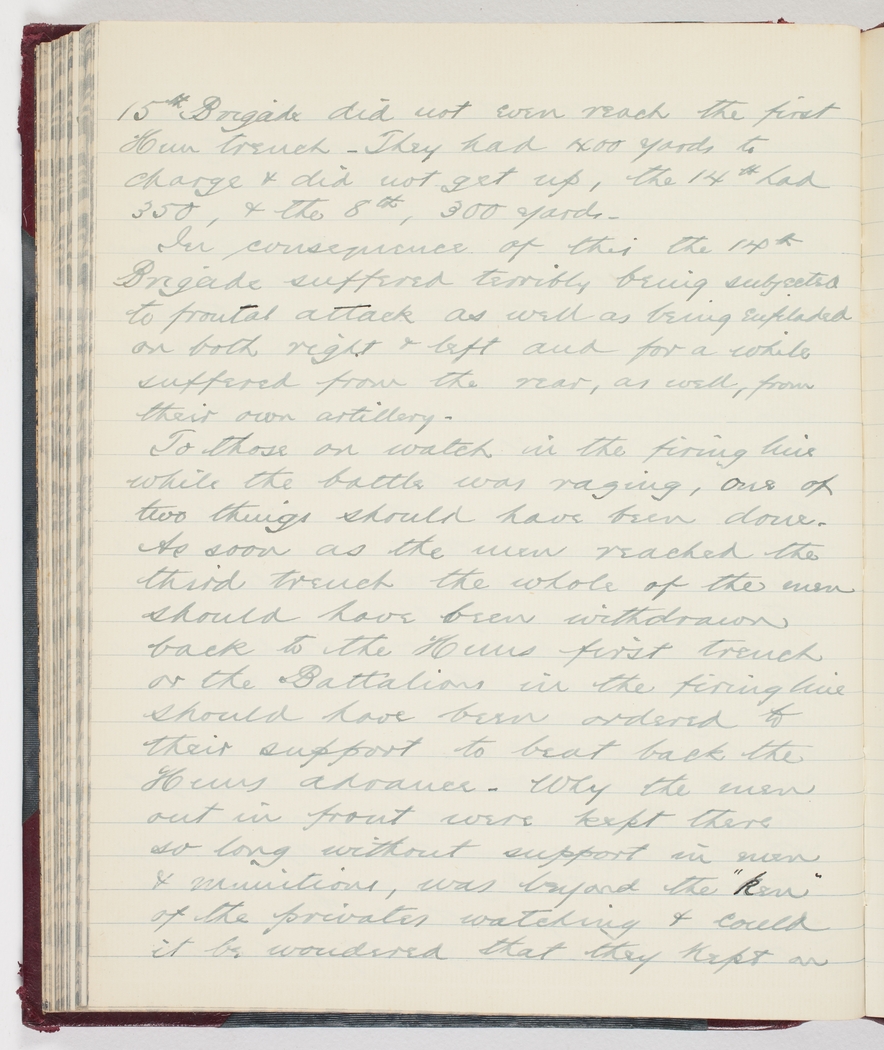 15th Brigade did not even reach the first
Hun trench - They had 400 yards to
charge & did not get up, the 14th had
350, & the 8th, 300 yards -
In consequence of this the 14th
Brigade suffered terribly being subjected
to frontal attack as well as being enfiladed
on both right & left and for a while
suffered from the rear, as well, from
their own artillery -
To those on watch in the firing line
while the battle was raging, one of
two things should have been done -
As soon as the men reached the
third trench the whole of the men
should have been withdrawn
back to the Huns first trench
or the Battalions in the firing line
should have been ordered to
their support to beat back the
Huns advance - Why the men
out in front were kept there
so long without support in men
& munitions, was beyond the "ken"
of the privates watching & could
it be wondered that they kept on